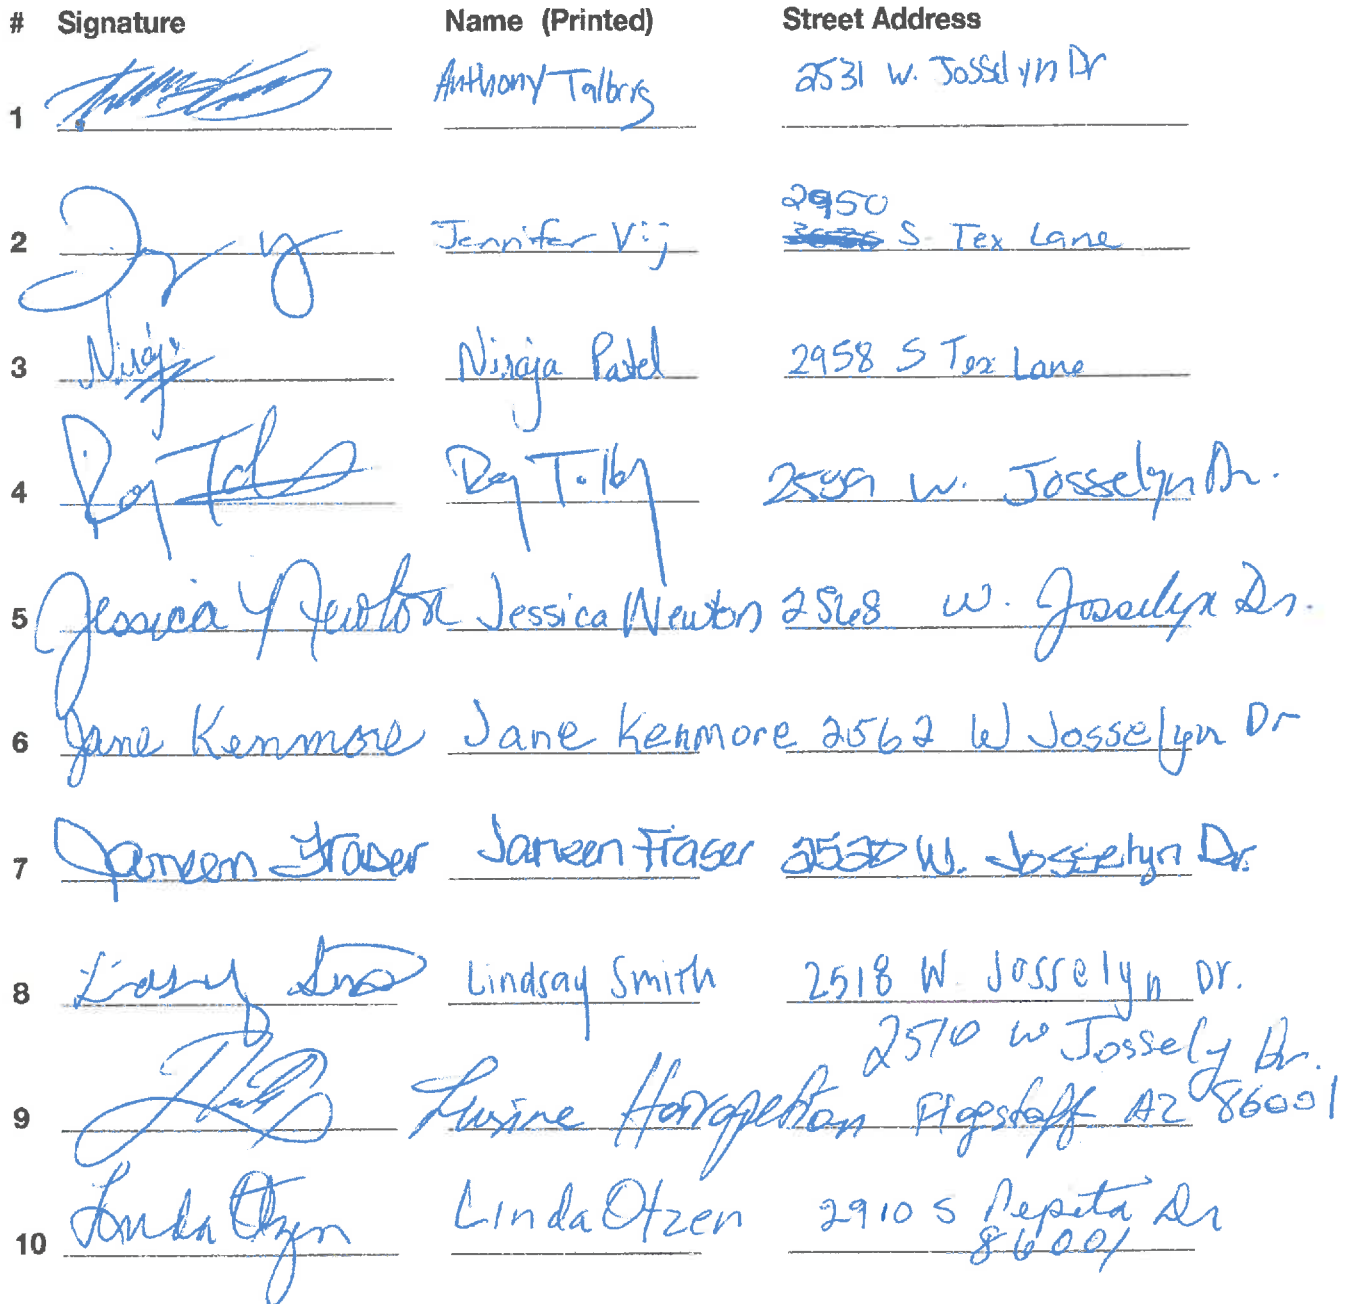 # Signature Name (Printed) Street Address
1 Anthony Talbrig 2531 W. Josselyn Dr
2950
2 Jennifer Vij S Tex Lane
3 Niraja Niraja Patel 2958 S Tex Lane
4 Roy W. Josselyn Dr.
5 Jessica Newton Jessica Newton 2568 W. Josselyn Dr.
6 Jane Kenmore Jane Kenmore 2562 W Josselyn Dr
7 Janeen Fraser Janeen Fraser W. Josselyn Dr.
8 Lindsay Smith 2518 W Josselyn Dr.
2510 W Jossely Dr.
9 Lusine Flagstaff AZ 86001
10 Linda Otzen Linda Otzen 2910 S Pepita Dr
86001